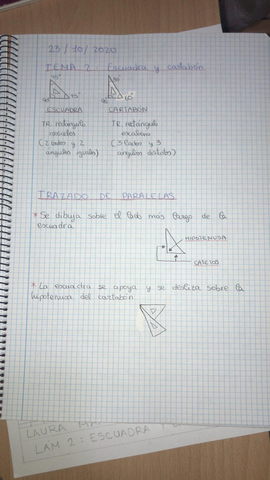 23/10/2020
TEMA 2: Escuadra y cartabón
45°
90° 45°
30°
90° 60°
ESCUADRA CARTABÓN
TR. rectángulo TR. rectángulo
isósceles escaleno
(2 lados y 2 (3 lados y 3
ángulos iguales) ángulos distintos)
TRAZADO DE PARALELAS
* Se dibuja sobre el lado más largo de la
escuadra
HIPOTENUSA
CATETOS
* La escuadra se apoya y se desliza sobre la
hipotenusa del cartabón
LAURA
LAM 2: ESCUADRA Y